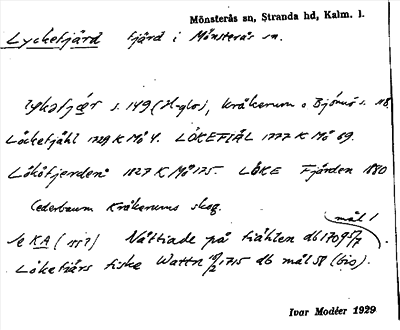 Mönsterås sn, Stranda hd, Kalm. l.
Lyckefjärd fjärd i Mönsterås sn.
s. 149 (H-glos), Kråkerum o Bjönnö s. 118
Löckefjähl 1729 K Mö 4. LÖKEFIÄL 1777 K Mö 69.
Lököfjerden 1827 K Mö 175. LÖKE Fjärden 1880
Cederbaum Kråkerums skog.
mål /
Se KA ( Nåttiade på fiählen db 1709 5/7
Lökefiärs fiske Wattn 1715 db mål 58 (bis).
Ivar Modéer 1929